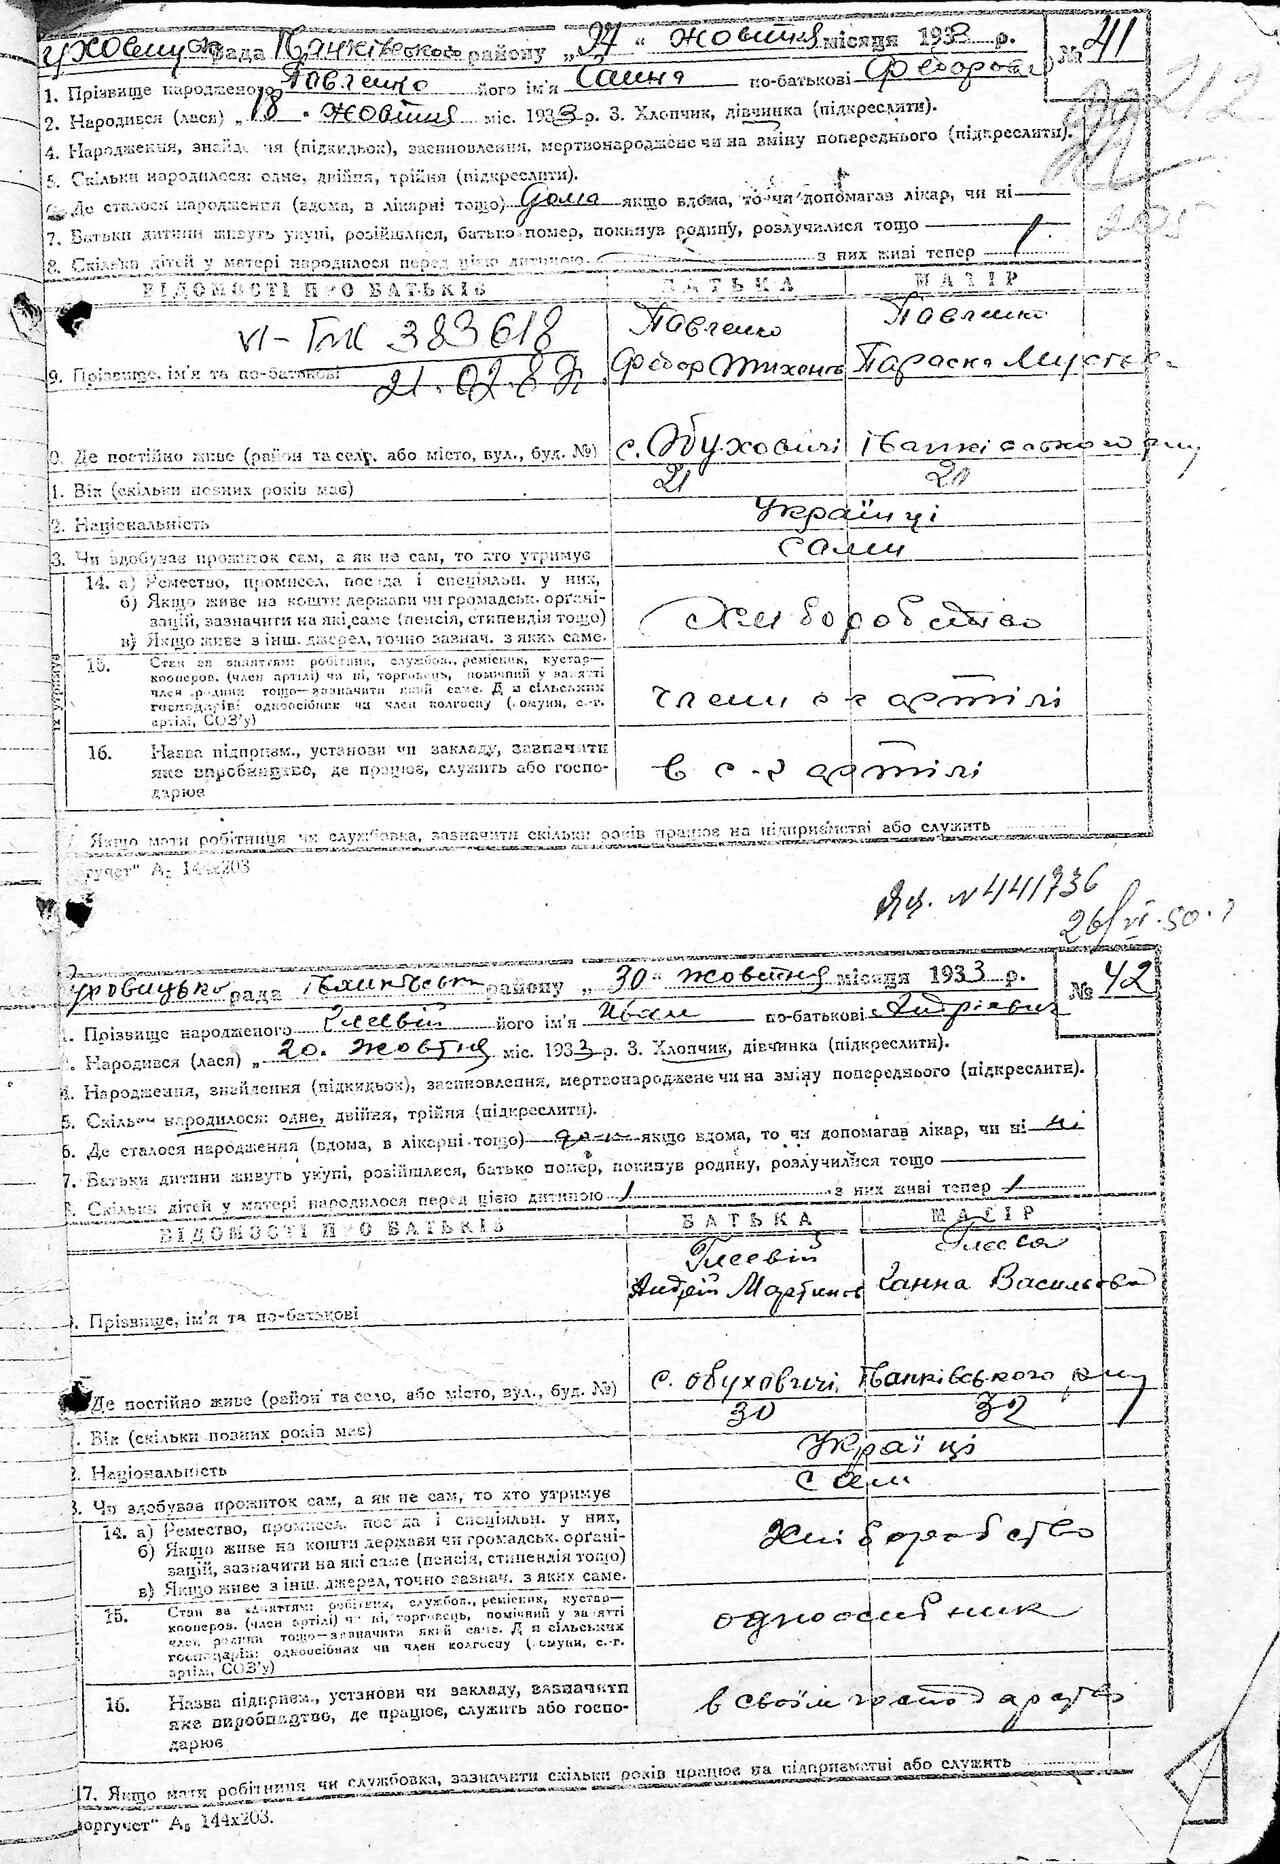 уховицька рада Іванківського району „27“ жовтня місяця 1933 р. № 41
1. Прізвище народженого Павленко його ім'я Ганна по-батькові Федоровн
2. Народився (лася) „18. жовтня міс. 1933 р. 3. Хлопчик, дівчинка (підкреслити).
212
4. Народження, знайдення (підкидьок), засиновлення, мертвонароджене чи на зміну попереднього (підкреслити).
5. Скільки народилося: одне, двійня, трійня (підкреслити).
6. Де сталося народження (вдома, в лікарні тощо) дома якщо вдома, то чи допомагав лікар, чи ні
205
7. Батьки дитини живуть укупі, розійшлися, батько помер, покинув родину, розлучилися тощо
8. Скільки дітей у матері народилося перед цією дитиною з них живі тепер 1
ВІДОМОСТІ ПРО БАТЬКІВ БАТЬКА МАТІР
VI-БК 383618
21.02.8
Павленко Павленко
9. Прізвище, ім'я та по-батькові Федор Тихонов Параска
0. Де постійно живе (район та село, або місто, вул., буд. №) с. Обуховичі Іванківського р-ну
1. Вік (скільки повних років має) 21 20
2. Національність Українці
3. Чи здобував прожиток сам, а як не сам, то хто утримує сами
14. а) Ремество, промисел, посада і спеціяльн. у них,
б) Якщо живе на кошти держави чи громадськ. органі-
зацій, зазначити на які саме (пенсія, стипендія тощо)
в) Якщо живе з інш. джерел, точно зазнач. з яких саме.
хліборобство
15. Стан за заняттям: робітник, службов., ремісник, кустар—
кооперов. (член артілі) чи ні, торговець, помічний у занятті
член родини тощо—зазначити який саме. Для сільських
господарів: одноосібник чи член колгоспу (комуни, с.-г.
артілі, СОЗ'у)
члени с г артілі
16. Назва підприєм., установи чи закладу, зазначити
яке виробництво, де працює, служить або госпо-
дарює
в с.-г артілі
Якщо мати робітниця чи службовка, зазначити скільки років працює на підприємстві або служить
оргучет" А₅ 144х203
№ 441736
26/VI.50.
уховицька рада Іванківськ району „30“ жовтня місяця 1933 р. № 42
1. Прізвище народженого Глєвій його ім'я Іван по-батькові Андрієвич
2. Народився (лася) „20. жовтня міс. 1933 р. 3. Хлопчик, дівчинка (підкреслити).
4. Народження, знайдення (підкидьок), засиновлення, мертвонароджене чи на зміну попереднього (підкреслити).
5. Скільки народилося: одне, двійня, трійня (підкреслити).
6. Де сталося народження (вдома, в лікарні тощо) дома якщо вдома, то чи допомагав лікар, чи ні ні
7. Батьки дитини живуть укупі, розійшлися, батько помер, покинув родину, розлучилися тощо
8. Скільки дітей у матері народилося перед цією дитиною 1 з них живі тепер 1
ВІДОМОСТІ ПРО БАТЬКІВ БАТЬКА МАТІР
Глєвій
Андрій Мартинов Ганна Васильова
9. Прізвище, ім'я та по-батькові
Де постійно живе (район та село, або місто, вул., буд. №) с. Обуховичі Іванківського р-ну
1. Вік (скільки повних років має) 30 32
2. Національність Украіці
3. Чи здобував прожиток сам, а як не сам, то хто утримує сами
14. а) Ремество, промисел, посада і спеціяльн. у них,
б) Якщо живе на кошти держави чи громадськ. органі-
зацій, зазначити на які саме (пенсія, стипендія тощо)
в) Якщо живе з інш. джерел, точно зазнач. з яких саме.
хліборобство
15. Стан за заняттям: робітник, службов., ремісник, кустар—
кооперов. (член артілі) чи ні, торговець, помічний у занятті
член родини тощо—зазначити який саме. Для сільських
господарів: одноосібник чи член колгоспу (комуни, с.-г.
артілі, СОЗ'у)
одноосибник
16. Назва підприєм., установи чи закладу, зазначити
яке виробництво, де працює, служить або госпо-
дарює
в своїм господарстві
17. Якщо мати робітниця чи службовка, зазначити скільки років працює на підприємстві або служить
оргучет" А₅ 144х203.